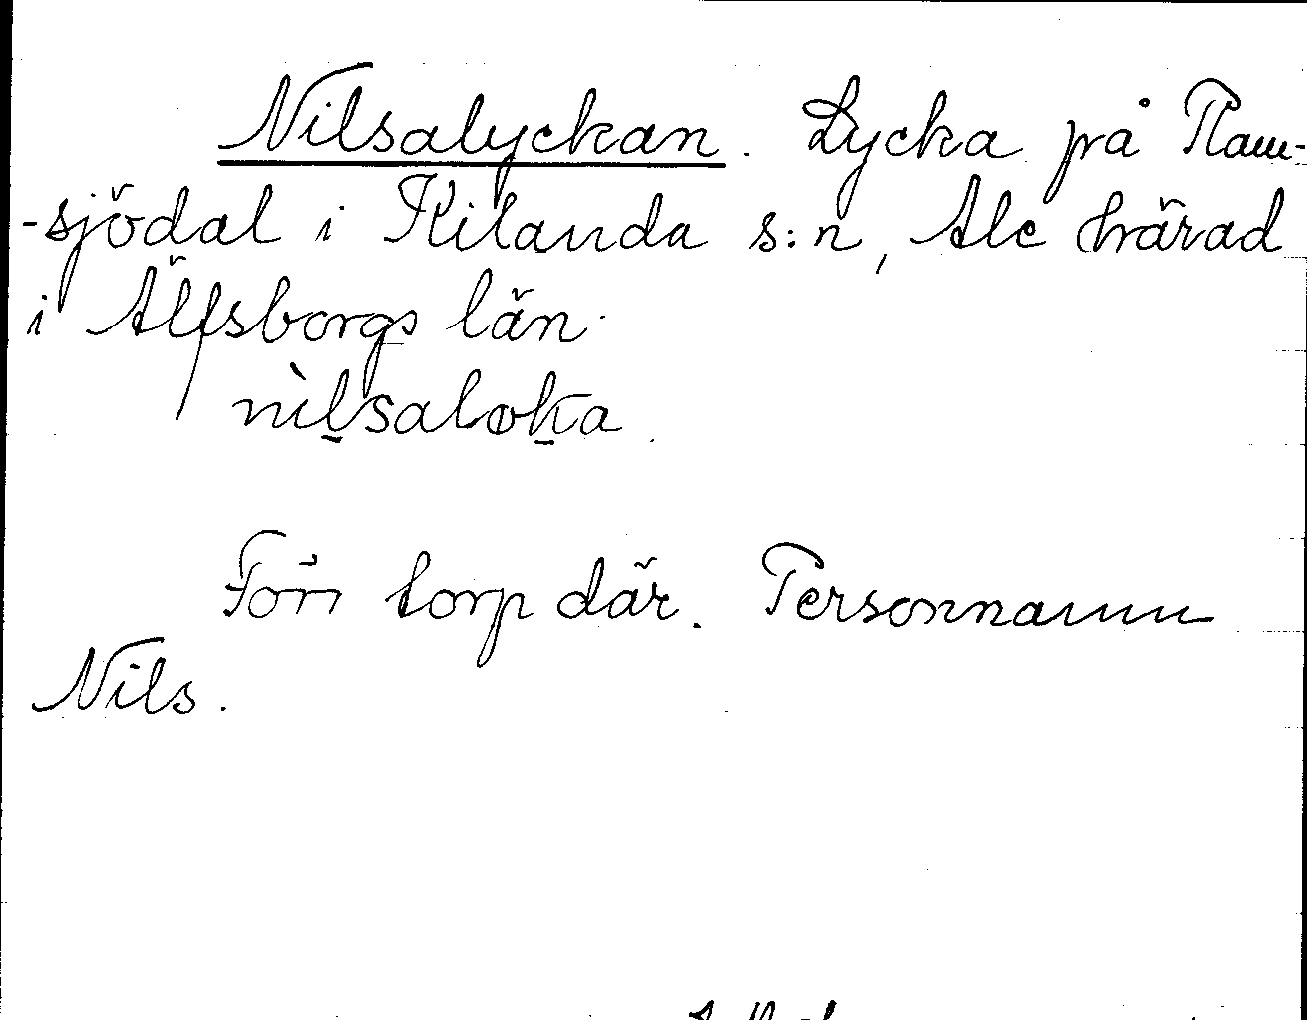 Nilsalyckan. Lycka på Ram-
-sjödal i Kilanda s:n, Ale härad
i Älfsborgs län.
nìl̠saloḵa.
Förr torp där. Personnamn
Nils.